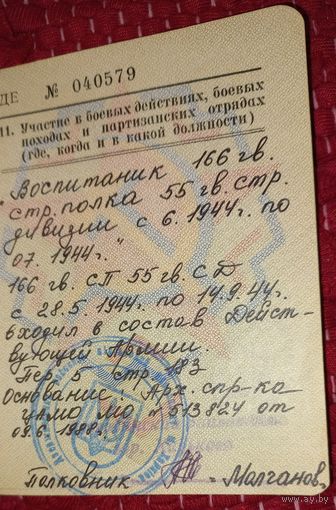 ДЕ № 040579
11. Участие в боевых действиях, боевых
походах и партизанских отрядах
(где, когда и в какой должности)
"Воспитаник 166 гв.
стр. полка 55 гв. стр.
дивизии с 6.1944г. по
07.1944г."
166 гв. СП 55 гв. СД
с 28.5.1944г. по 14.9.44г.
входил в состав Дейст-
вующей Армии.
Пер. 5 стр. 183
Основание: Арх. спр-ка
ЦАМО МО № 513824 от
09.6.1988г.
Полковник Молчанов
www.ay.by